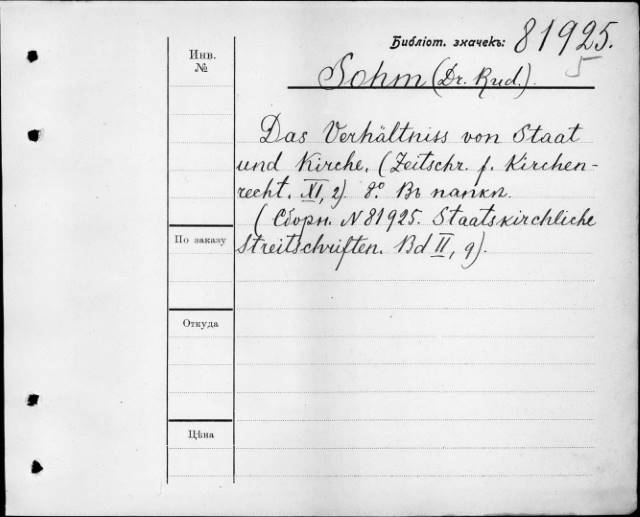 Библіот. значекъ: 81925.
5
Инв.
№
Sohm (Dr. Rud.)
Das Verhältniss von Staat
und Kirche. (Zeitschr. f. Kirchen-
recht. XI, 2). 8°. Въ папкѣ.
(Сборн. N 81925. Staatskirchliche
Streitschriften. Bd II, 9).
По заказу
Откуда
Цѣна